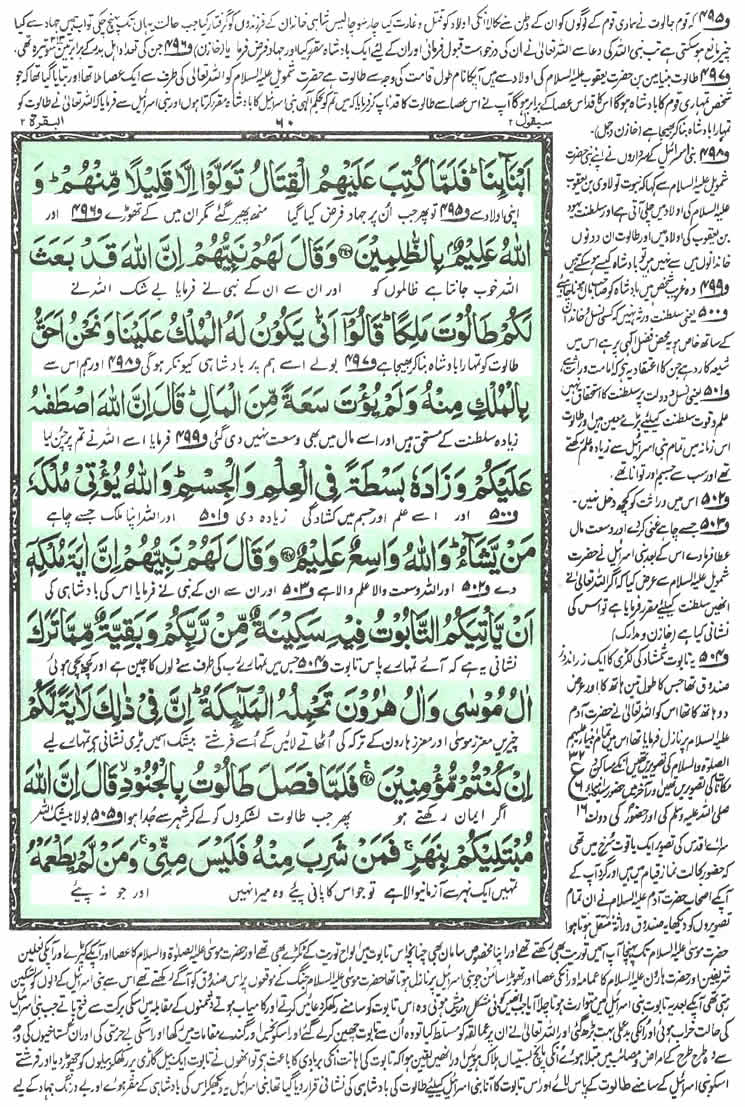 و۴۹۵ کہ قوم جالوت نے ہماری قوم کے لوگوں کو ان کے وطن سے نکالا انکی اولاد کو قتل و غارت کیا چار سو چالیس شاہی خاندان کے فرزندوں کو گرفتار کیا جب حالت یہاں تک پہنچ چکی تو اب ہمیں جہاد سے کیا
چیز مانع ہو سکتی ہے تب نبی اللہ کی دعا سے اللہ تعالیٰ نے ان کی درخواست قبول فرمائی اور ان کے لئے ایک بادشاہ مقرر کیا اور جہاد فرض فرمایا (خازن) و۴۹۶ جن کی تعداد اہل بدر کے برابر تین سو تیرہ تھی
و۴۹۷ طالوت بنیامین بن حضرت یعقوب علیہ السلام کی اولاد سے ہیں آپ کا نام طول قامت کی وجہ سے طالوت ہے حضرت شمویل علیہ السلام کو اللہ تعالیٰ کی طرف سے ایک عصا ملا تھا اور بتایا گیا تھا کہ جو
شخص تمہاری قوم کا بادشاہ ہوگا اس کا قد اس عصا کے برابر ہوگا آپ نے اس عصا سے طالوت کا قد ناپ کر فرمایا کہ میں تم کو بحکم الٰہی بنی اسرائیل کا بادشاہ مقرر کرتا ہوں اور بنی اسرائیل سے فرمایا کہ اللہ تعالیٰ نے طالوت کو
تمہارا بادشاہ بنا کر بھیجا ہے (خازن و جمل)
سیقول ۲
۶۰
البقرۃ ۲
اَبْنَآىِٕنَا ؕ فَلَمَّا كُتِبَ عَلَیْهِمُ الْقِتَالُ تَوَلَّوْا اِلَّا قَلِیْلًا مِّنْهُمْ ؕ وَ
اپنی اولاد سے و۴۹۵ تو پھر جب اُن پر جہاد فرض کیا گیا منھ پھیر گئے مگر ان میں کے تھوڑے و۴۹۶ اور
اللّٰهُ عَلِیْمٌۢ بِالظّٰلِمِیْنَ وَ قَالَ لَهُمْ نَبِیُّهُمْ اِنَّ اللّٰهَ قَدْ بَعَثَ
اللہ خوب جانتا ہے ظالموں کو اور ان سے ان کے نبی نے فرمایا بے شک اللہ نے
لَكُمْ طَالُوْتَ مَلِكًا ؕ قَالُوْۤا اَنّٰى یَكُوْنُ لَهُ الْمُلْكُ عَلَیْنَا وَ نَحْنُ اَحَقُّ
طالوت کو تمہارا بادشاہ بنا کر بھیجا ہے و۴۹۷ بولے اسے ہم پر بادشاہی کیونکر ہوگی و۴۹۸ اور ہم اس سے
بِالْمُلْكِ مِنْهُ وَ لَمْ یُؤْتَ سَعَةً مِّنَ الْمَالِ ؕ قَالَ اِنَّ اللّٰهَ اصْطَفٰىهُ
زیادہ سلطنت کے مستحق ہیں اور اسے مال میں بھی وسعت نہیں دی گئی و۴۹۹ فرمایا اسے اللہ نے تم پر چن لیا
عَلَیْكُمْ وَ زَادَهٗ بَسْطَةً فِی الْعِلْمِ وَ الْجِسْمِ ؕ وَ اللّٰهُ یُؤْتِیْ مُلْكَهٗ
و۵۰۰ اور اسے علم اور جسم میں کشادگی زیادہ دی و۵۰۱ اور اللہ اپنا ملک جسے چاہے
مَنْ یَّشَآءُ ؕ وَ اللّٰهُ وَاسِعٌ عَلِیْمٌ وَ قَالَ لَهُمْ نَبِیُّهُمْ اِنَّ اٰیَةَ مُلْكِهٖۤ
دے و۵۰۲ اور اللہ وسعت والا علم والا ہے و۵۰۳ اور ان سے ان کے نبی نے فرمایا اس کی بادشاہی کی
اَنْ یَّاْتِیَكُمُ التَّابُوْتُ فِیْهِ سَكِیْنَةٌ مِّنْ رَّبِّكُمْ وَ بَقِیَّةٌ مِّمَّا تَرَكَ
نشانی یہ ہے کہ آئے تمہارے پاس تابوت و۵۰۴ جس میں تمہارے رب کی طرف سے دلوں کا چین ہے اور کچھ بچی ہوئی
اٰلُ مُوْسٰى وَ اٰلُ هٰرُوْنَ تَحْمِلُهُ الْمَلٰٓىِٕكَةُ ؕ اِنَّ فِیْ ذٰلِكَ لَاٰیَةً لَّكُمْ
چیزیں معزز موسٰی اور معزز ہارون کے ترکہ کی اُٹھاتے لائیں گے اُسے فرشتے بیشک اس میں بڑی نشانی ہے تمہارے لیے
اِنْ كُنْتُمْ مُّؤْمِنِیْنَ فَلَمَّا فَصَلَ طَالُوْتُ بِالْجُنُوْدِ ۙ قَالَ اِنَّ اللّٰهَ
اگر ایمان رکھتے ہو پھر جب طالوت لشکروں کو لے کر شہر سے جدا ہوا و۵۰۵ بولا بیشک اللہ
مُبْتَلِیْكُمْ بِنَهَرٍ ۚ فَمَنْ شَرِبَ مِنْهُ فَلَیْسَ مِنِّیْ ۚ وَ مَنْ لَّمْ یَطْعَمْهُ
تمہیں ایک نہر سے آزمانے والا ہے تو جو اس کا پانی پئے وہ میرا نہیں اور جو نہ پئے
و۴۹۸ بنی اسرائیل کے سرداروں نے اپنے نبی حضرت
شمویل علیہ السلام سے کہا کہ نبوت تو لاوی بن یعقوب
علیہ السلام کی اولاد میں چلی آتی ہے اور سلطنت یہود
بن یعقوب کی اولاد میں اور طالوت ان دونوں
خاندانوں میں سے نہیں ہیں تو بادشاہ کیسے ہو سکتے ہیں
و۴۹۹ وہ غریب شخص ہیں بادشاہ کو صاحب مال ہونا چاہیے
و۵۰۰ یعنی سلطنت ورثہ نہیں کہ کسی نسل و خاندان
کے ساتھ خاص ہو یہ محض فضل الٰہی پر ہے اس میں
شیعہ کا رد ہے جن کا اعتقاد یہ ہے کہ امامت وراثت ہے
و۵۰۱ یعنی نسل و دولت پر سلطنت کا استحقاق نہیں
علم و قوت سلطنت کیلئے بڑے معین ہیں اور طالوت
اس زمانہ میں تمام بنی اسرائیل سے زیادہ علم رکھتے
تھے اور سب سے جسیم اور توانا تھے۔
و۵۰۲ اس میں وراثت کو کچھ دخل نہیں۔
و۵۰۳ جسے چاہے غنی کر دے اور وسعت مال
عطا فرما دے اس کے بعد بنی اسرائیل نے حضرت
شمویل علیہ السلام سے عرض کیا کہ اگر اللہ تعالیٰ نے
انہیں سلطنت کیلئے مقرر فرمایا ہے تو اس کی
نشانی کیا ہے (خازن و مدارک)
و۵۰۴ یہ تابوت شمشاد کی لکڑی کا ایک زر اندود
صندوق تھا جس کا طول تین ہاتھ کا اور عرض
دو ہاتھ کا تھا اس کو اللہ تعالیٰ نے حضرت آدم
علیہ السلام پر نازل فرمایا تھا اس میں تمام انبیاء علیہم
الصلوۃ والسلام کی تصویریں تھیں انکے مساکن و
مکانات کی تصویریں تھیں اور آخر میں حضور سید انبیاء
صلی اللہ علیہ وسلم کی اور حضور کی دولت
سرائے اقدس کی تصویر ایک یاقوت سرخ میں تھی
کہ حضور بحالت نماز قیام میں ہیں اور گرد آپ کے
آپکے اصحاب حضرت آدم علیہ السلام نے ان تمام
تصویروں کو دیکھا یہ صندوق وراثۃً منتقل ہوتا ہوا
حضرت موسٰی علیہ السلام تک پہنچا آپ اس میں توریت بھی رکھتے تھے اور اپنا مخصوص سامان بھی چنانچہ اس تابوت میں الواح توریت کے ٹکڑے بھی تھے اور حضرت موسٰی علیہ الصلوۃ والسلام کا عصا اور آپکے کپڑے اور آپکی نعلین
شریفین اور حضرت ہارون علیہ السلام کا عمامہ اور انکا عصا اور تھوڑا سا من جو بنی اسرائیل پر نازل ہوتا تھا حضرت موسٰی علیہ السلام جنگ کے موقعوں پر اس صندوق کو آگے رکھتے تھے اس سے بنی اسرائیل کے دلوں کو تسکین
رہتی تھی آپکے بعد یہ تابوت بنی اسرائیل میں متوارث ہوتا چلا آیا جب انہیں کوئی مشکل درپیش ہوتی وہ اس تابوت کو سامنے رکھکر دعائیں کرتے اور کامیاب ہوتے دشمنوں کے مقابلہ میں اسکی برکت سے فتح پاتے جب بنی اسرائیل
کی حالت خراب ہوئی اور انکی بدعملی بہت بڑھ گئی اور اللہ تعالیٰ نے ان پر عمالقہ کو مسلط کیا تو وہ اُن سے تابوت چھین کر لے گئے اور اسکو نجس اور گندے مقامات میں رکھا اور اسکی بے حرمتی کی اور ان گستاخیوں کی وجہ
سے وہ طرح طرح کے امراض و مصائب میں مبتلا ہوئے اُنکی پانچ بستیاں ہلاک ہوئیں اور انھیں یقین ہوا کہ تابوت کی اہانت انکی بربادی کا باعث ہے تو انھوں نے تابوت ایک بیل گاڑی پر رکھکر بیلوں کو چھوڑ دیا اور فرشتے
اسکو بنی اسرائیل کے سامنے طالوت کے پاس لائے اور اس تابوت کا آنا بنی اسرائیل کیلئے طالوت کی بادشاہی کی نشانی قرار دیا گیا تھا بنی اسرائیل یہ دیکھکر اس کی بادشاہی کے مقر ہوئے اور بے درنگ جہاد کے لیے